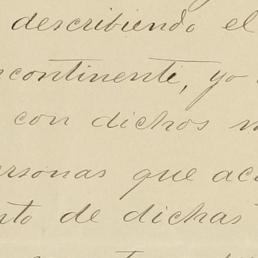 describiendo el
continenti, yo
con dichos
ersonas que ac
nto de dichas